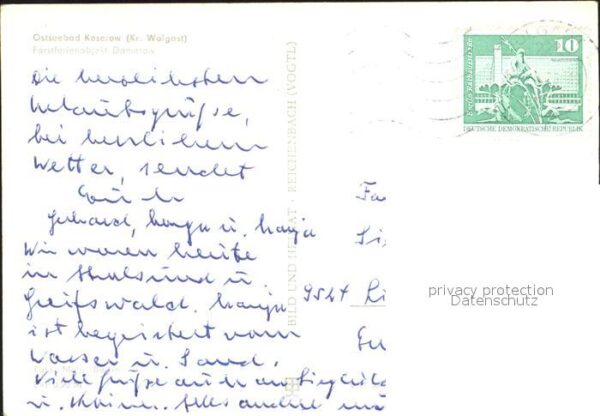 Ostseebad Koserow (Kr. Wolgast)
Forstferienobjekt Damerow
Die herzlichsten
Urlaubsgrüße,
bei herrlichem
Wetter, sendet
Euch
Gerhard, u. Manja
Wir waren heute
in Stralsund u.
Greifswald. Manja
ist begeistert vom
Wasser u. Sand.
Viele Grüße auch an
u. Alles andere
BILD UND HEIMAT · REICHENBACH (VOGTL)
10
DEUTSCHE DEMOKRATISCHE REPUBLIK
Fa
Si
Li
privacy protection
Datenschutz